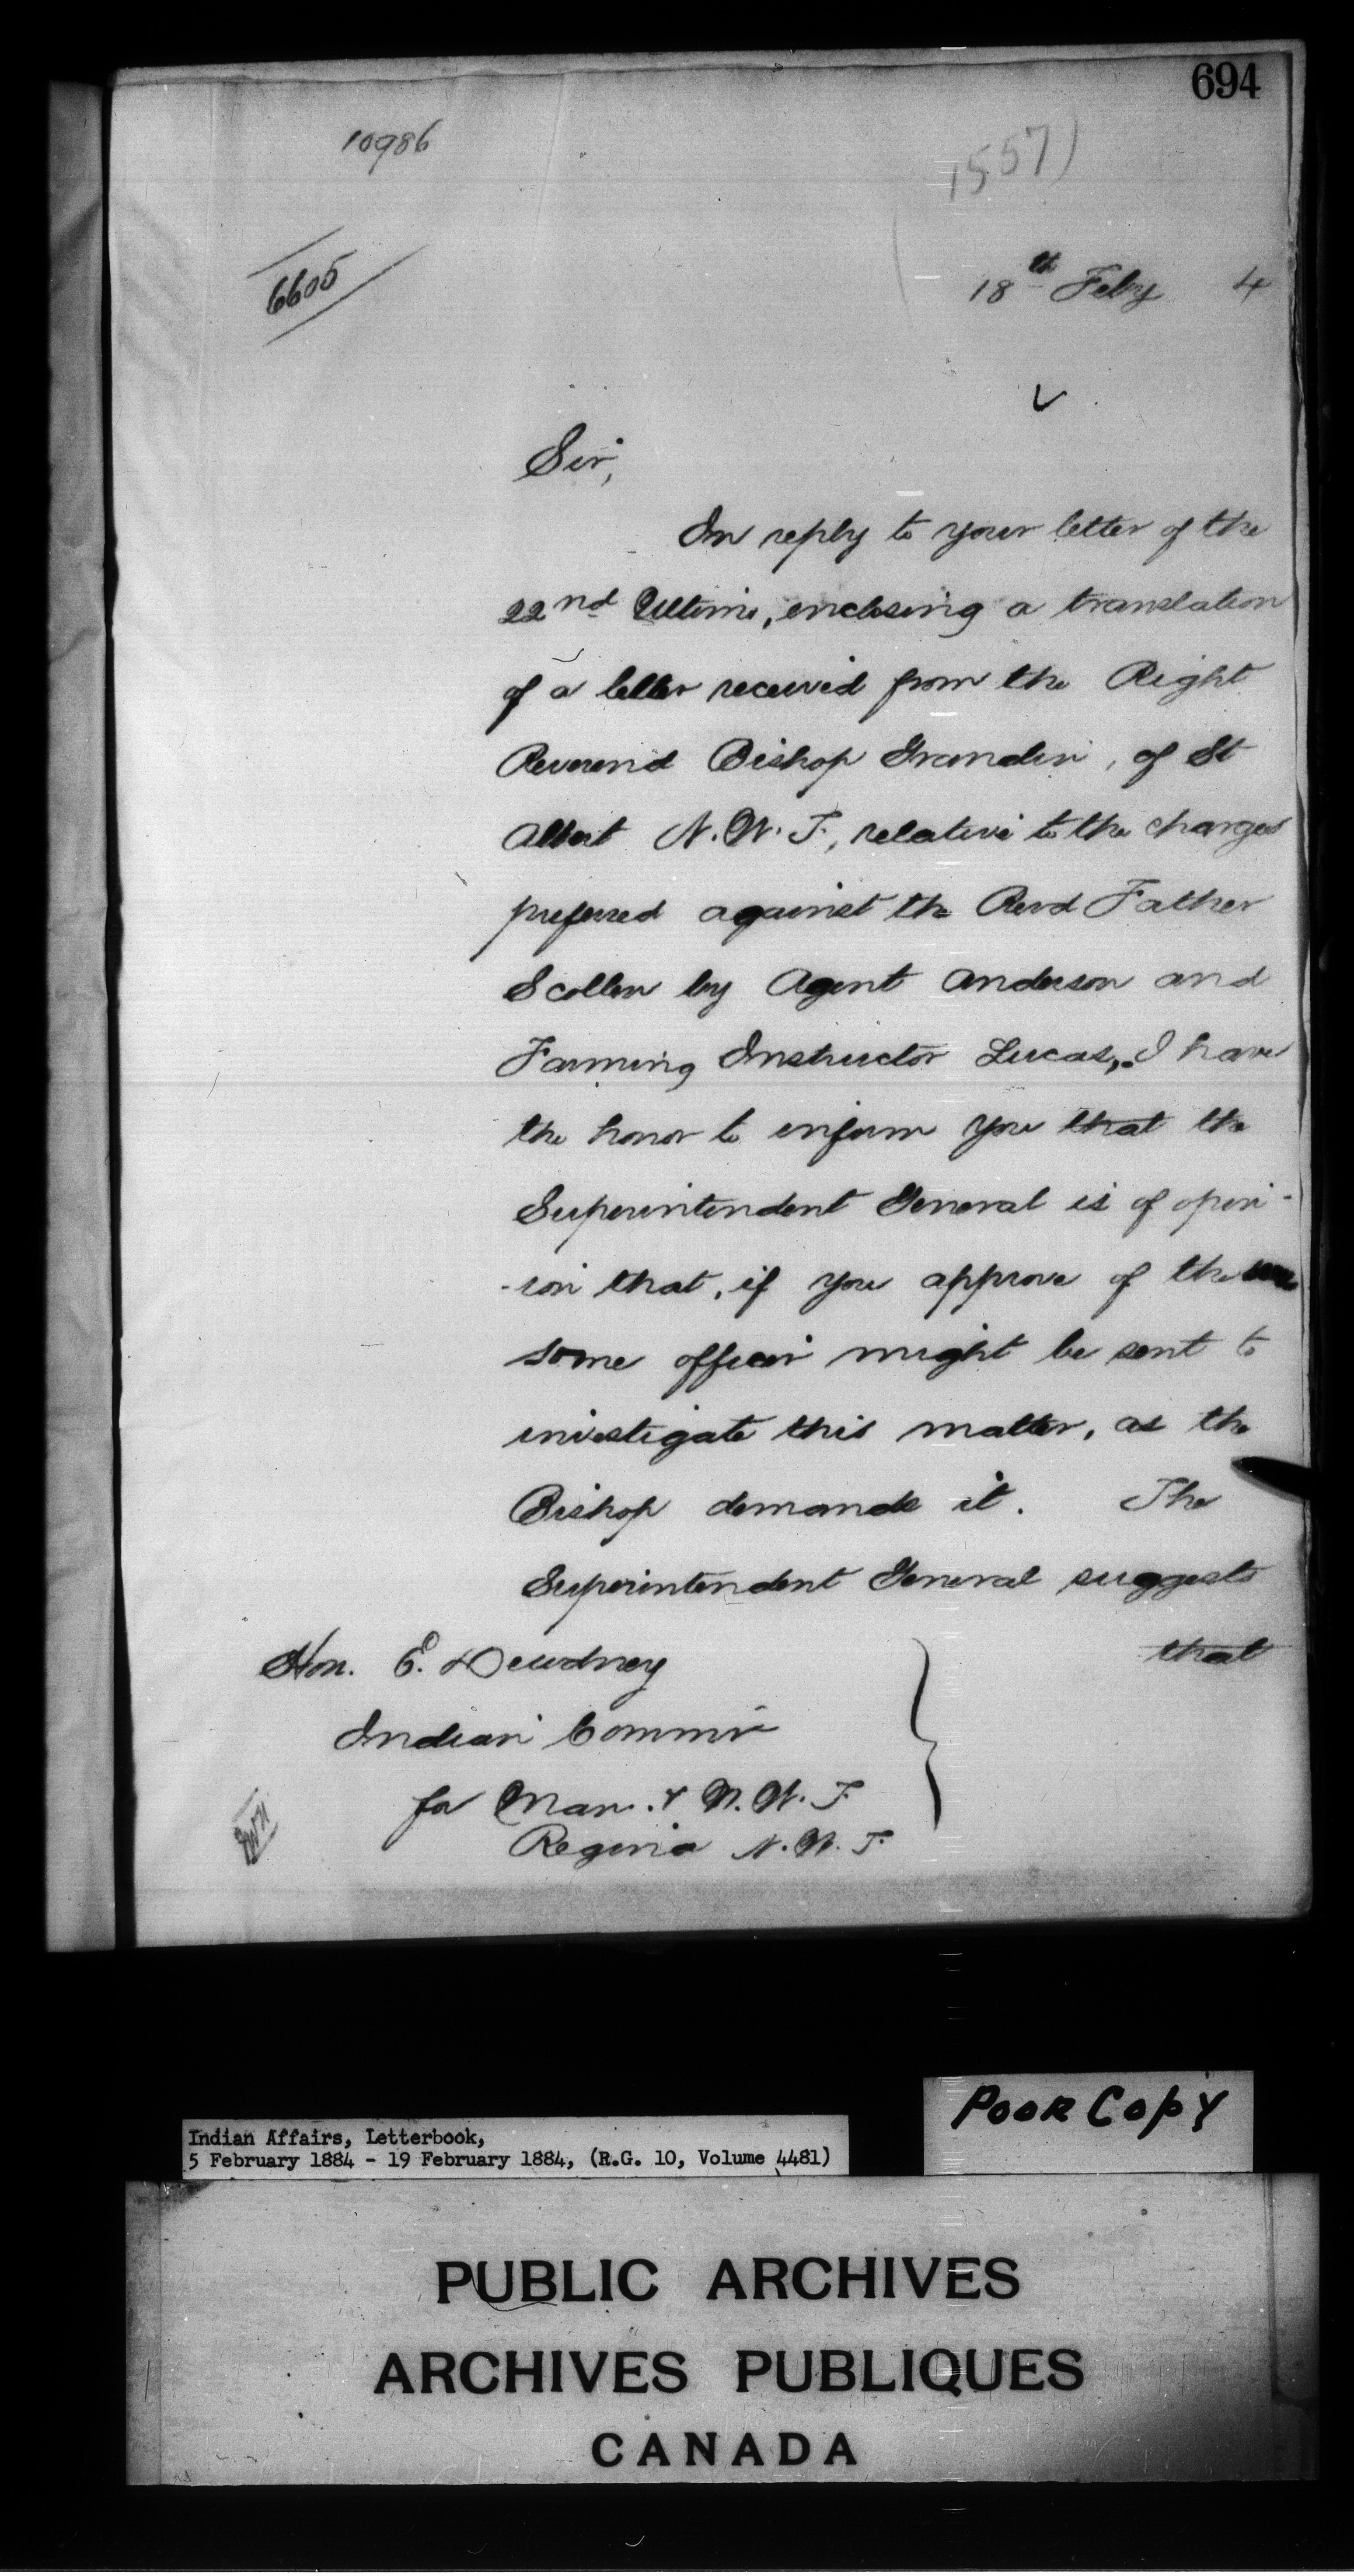 694
10986
1557)
6605
18th Feby 4
Sir,
In reply to your letter of the
22nd Ultimo, enclosing a translation
of a letter received from the Right
Reverend Bishop Grandin, of St
Albert N.W.T., relative to the charges
preferred against the Revd Father
Scollen by Agent Anderson and
Farming Instructor Lucas, I have
the honor to inform you that the
Superintendent General is of opin-
-ion that, if you approve of the
some officer might be sent to
investigate this matter, as the
Bishop demands it. The
Superintendent General suggests
that
Hon. E. Dewdney
Indian Commr
for Man. & N.W.T.
Regina N.W.T.
Poor Copy
Indian Affairs, Letterbook,
5 February 1884 - 19 February 1884, (R.G. 10, Volume 4481)
PUBLIC ARCHIVES
ARCHIVES PUBLIQUES
CANADA